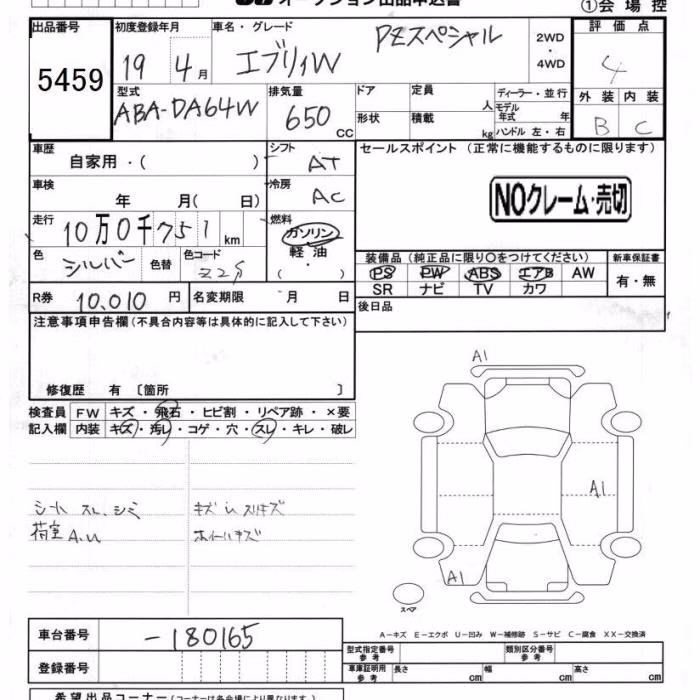 オークション出品申込書
①会場控
出品番号 初度登録年月 車名・グレード 評価点
5459 19 4月 エブリィW PZスペシャル 2WD・4WD 4
型式 排気量 ドア 定員 人 ディーラー・並行 外装 内装
ABA-DA64W 650 CC 形状 積載 kg モデル年式 年 ハンドル 左・右 B C
車歴 シフト セールスポイント (正常に機能するものに限ります)
自家用・( ) AT
車検 冷房
年 月( 日) AC NOクレーム・売切
走行 燃料
10万0千751km ガソリン
色 色替 色コード 軽油 装備品 (純正品に限り○をつけてください) 新車保証書
シルバー Z2S ・( ) PS PW ABS エアB AW 有・無
SR ナビ TV カワ
R券 10,010 円 名変期限 月 日 後日品
注意事項申告欄(不具合内容等は具体的に記入して下さい)
修復歴 有 〔箇所 〕
検査員 FW キズ・飛石・ヒビ割・リペア跡・×要
記入欄 内装 キズ・汚レ・コゲ・穴・スレ・キレ・破レ
A1
A1
シート スレ、シミ キズ in スリキズ
荷室 A.u ホイールキズ
A1
スペア
A-キズ E-エクボ U-凹み W-補修跡 S-サビ C-腐食 XX-交換済
車台番号 -180165 型式指定番号 参考 類別区分番号 参考
登録番号 車庫証明用 参考 長さ cm 幅 cm 高さ cm
希望出品コーナー(コーナーは各会場により異なります)